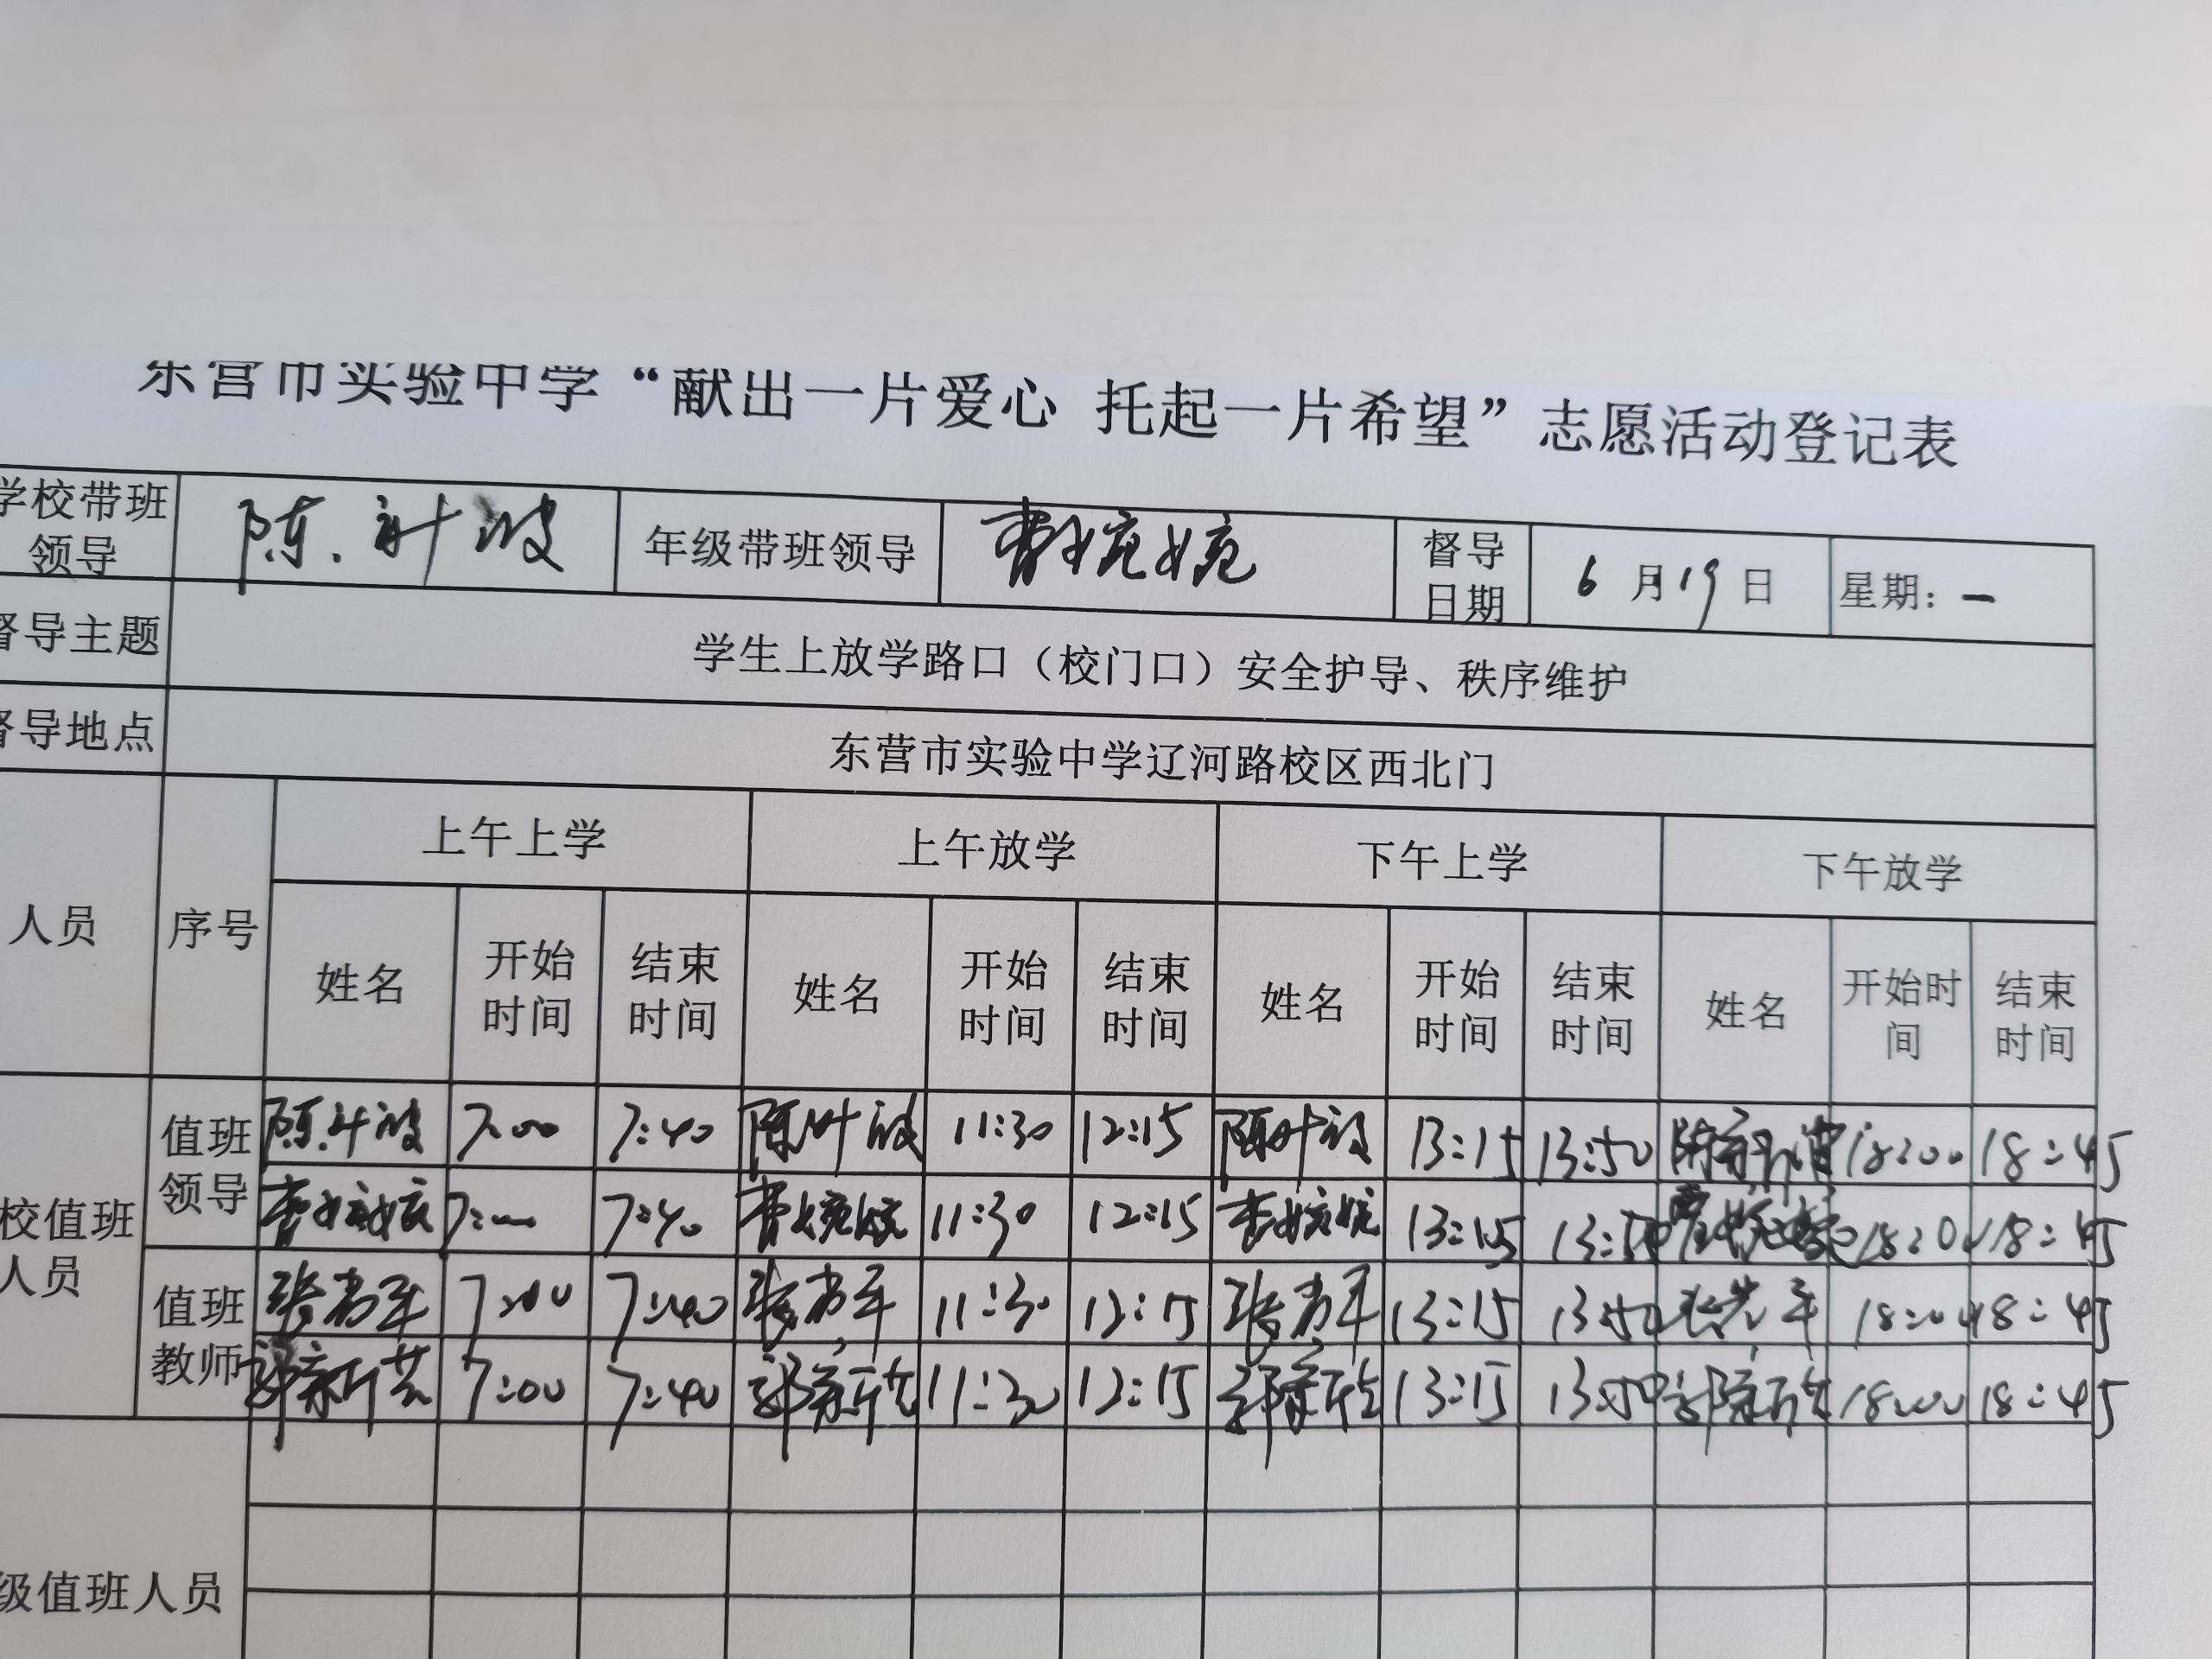 东营市实验中学“献出一片爱心 托起一片希望”志愿活动登记表
学校带班领导 陈 波 年级带班领导 曹婉婉 督导日期 6月19日 星期：一
督导主题 学生上放学路口（校门口）安全护导、秩序维护
督导地点 东营市实验中学辽河路校区西北门
人员 序号 上午上学 上午放学 下午上学 下午放学
姓名 开始时间 结束时间 姓名 开始时间 结束时间 姓名 开始时间 结束时间 姓名 开始时间 结束时间
校值班人员 值班领导 陈 波 7:00 7:40 陈 波 11:30 12:15 陈 波 13:15 13:50 陈 波 18:00 18:45
曹婉婉 7:00 7:40 曹婉婉 11:30 12:15 曹婉婉 13:15 13:50 曹婉婉 18:00 18:45
值班教师 张 军 7:00 7:40 张 军 11:30 12:15 张 军 13:15 13:50 张 军 18:00 18:45
郭新 7:00 7:40 郭新 11:30 12:15 郭新 13:15 13:50 郭新 18:00 18:45
级值班人员